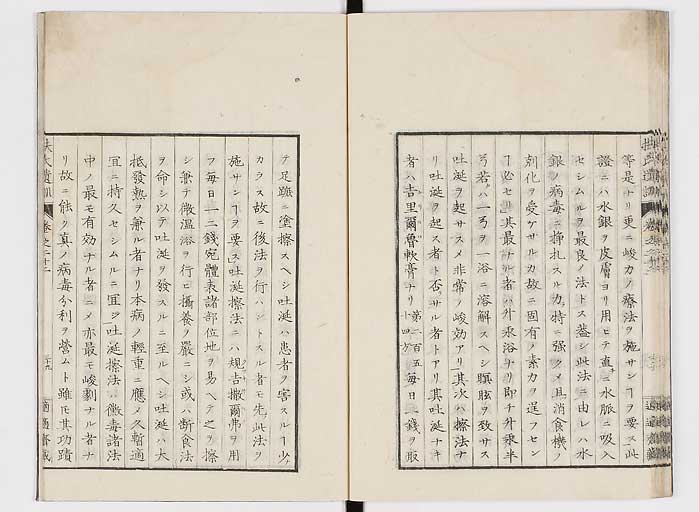 等是ナリ更ニ峻力ノ療法ヲ施サンヿヲ要ス此
證ニハ水銀ヲ皮膚ヨリ用ヒテ直ニ水脈ニ吸入
セシムルヲ最良ノ法トス蓋シ此法ニ由レハ水
銀ノ病毒ニ抗スル力特ニ強ク且消食機ノ
剋化ヲ受ケサルカ故ニ固有ノ素力ヲ逞フセン
ヿ必セリ其最ナル者ハ外汞浴ナリ即チ外汞半
弓若ハ一弓ヲ一浴ニ溶解スヘシ瞑眩ヲ致サス
吐涎ヲ起サスメ非常ノ峻効アリ其次ハ擦法ナ
リ吐涎ヲ起ス者ト否サル者トアリ其吐涎ナキ
者ハ吉里爾魯軟膏ナリ第二百五十四方毎日二錢ヲ取
テ足蹠ニ塗擦スヘシ吐涎ハ患者ヲ害スルヿ少
カラス故ニ後法ヲ行ハントスル者モ先此法ヲ
施サンヿヲ要ス吐涎擦法ニハ規吉撒爾弗ヲ用
フ毎日一二錢宛體表諸部位地ヲ易ヘテ之ヲ擦
シ兼テ微溫浴ヲ行ヒ攝養ヲ嚴ニシ或ハ斷食法
ヲ命シ以テ吐涎ヲ發スルニ至ルヘシ吐涎ハ大
抵發熱ヲ兼ル者ナリ本病ノ輕重ニ應メ久暫適
宜ニ持久セシムルニ宜シ吐涎擦法ハ黴毒諸法
中ノ最モ有効ナル者ニメ亦最モ峻劇ナル者ナ
リ故ニ能ク真ノ病毒分利ヲ營ムト雖モ其功蹟
扶氏遺訓 卷之二十二 廿九 適適齋藏